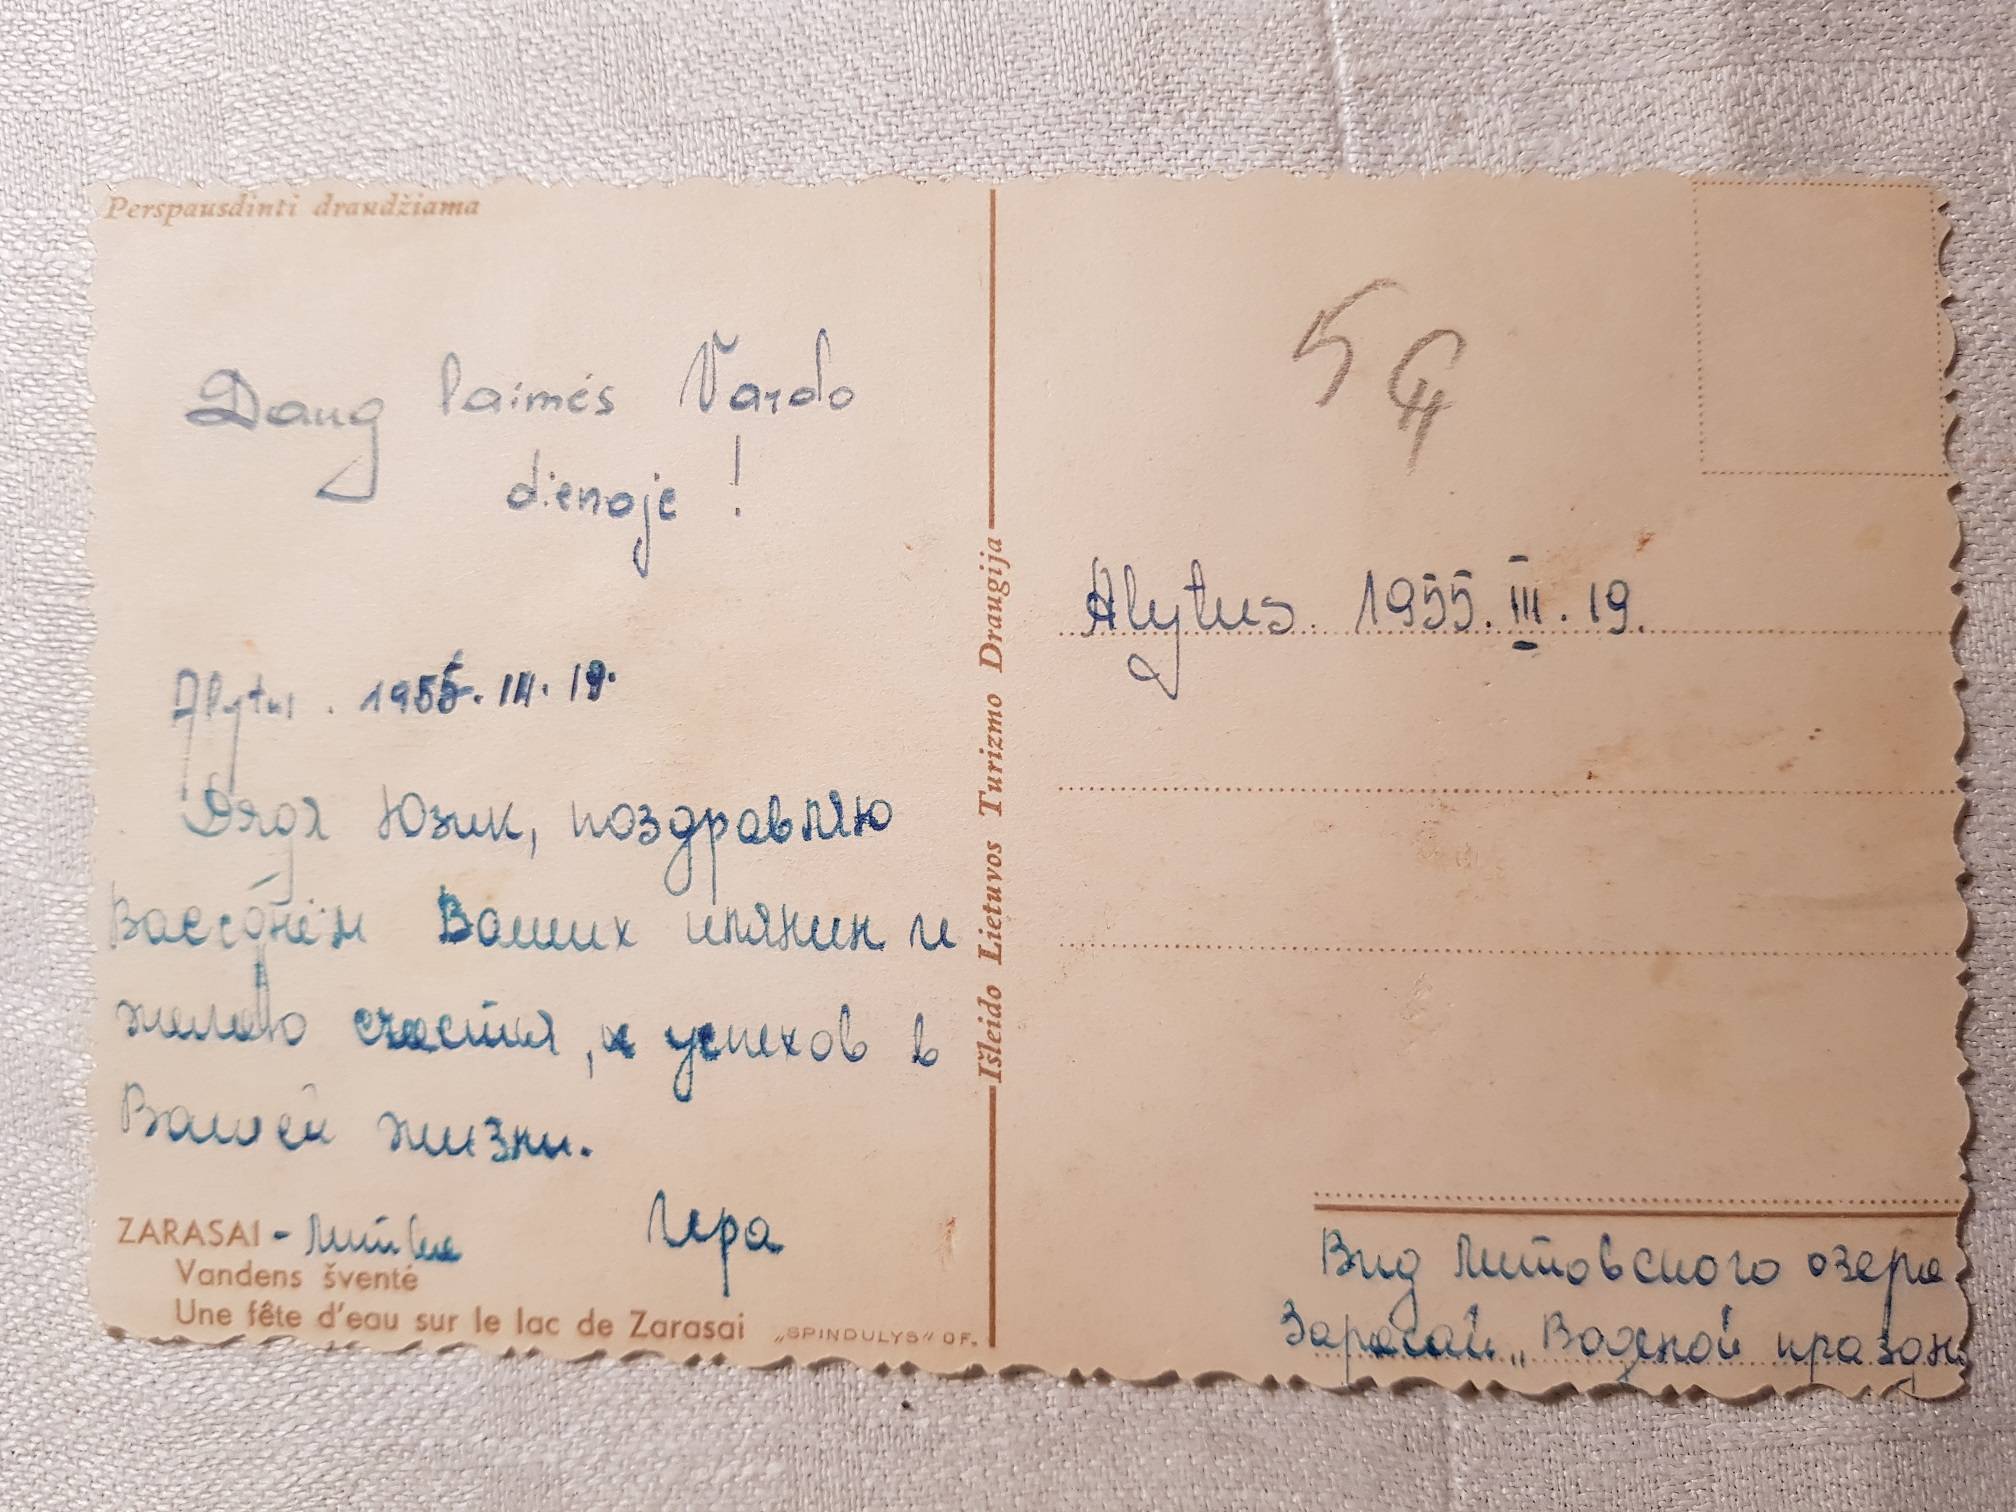 Perspausdinti draudžiama
Daug laimės Vardo
dienoje !
Alytus . 1955. III. 19.
Дядя Юзик, поздравляю
Вас с днём Ваших имянин и
желаю счастия, и успехов в
Вашей жизни.
Ира
ZARASAI - Литва
Vandens šventė
Une fête d'eau sur le lac de Zarasai
„SPINDULYS“ OF.
Išleido Lietuvos Turizmo Draugija
Alytus. 1955. III. 19.
Вид Литовского озера
Зарасай „Водяной праздн